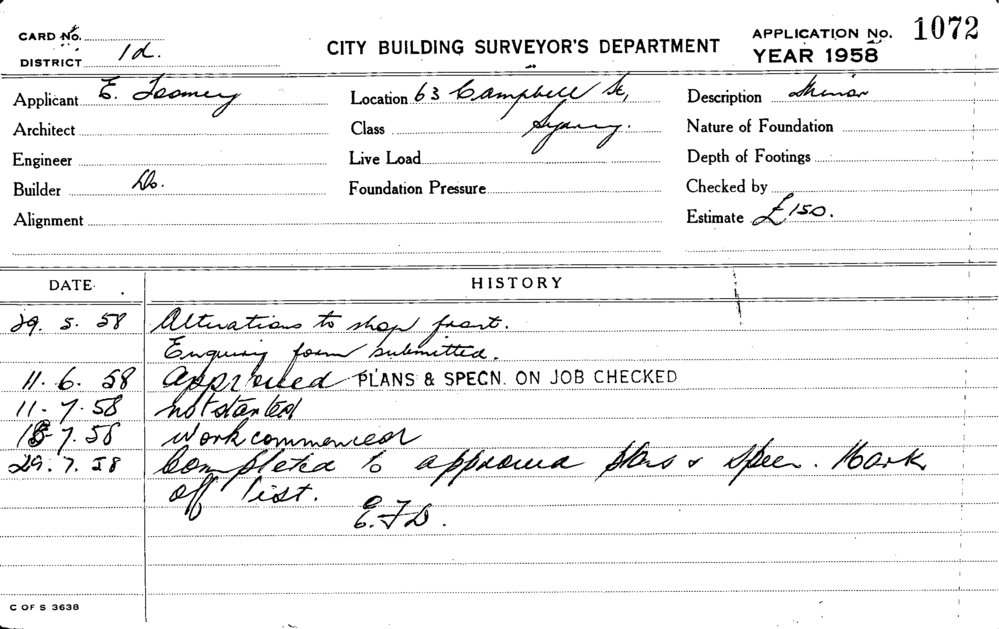 CARD No.
DISTRICT 1d.
CITY BUILDING SURVEYOR'S DEPARTMENT
APPLICATION No. 1072
YEAR 1958
Applicant E. Toomey
Location 63 Campbell St,
Description Minor
Architect
Class Sydney.
Nature of Foundation
Engineer
Live Load
Depth of Footings
Builder Do.
Foundation Pressure
Checked by
Alignment
Estimate £150.
DATE
HISTORY
29. 5. 58 Alterations to shop front.
Enquiry form submitted.
11. 6. 58 Approved PLANS & SPECN. ON JOB CHECKED
11. 7. 58 not started
7. 58 Work commenced
29. 7. 58 Completed to approved plans & Specn. Mark
off list.
E.F.D.
C OF S 3638